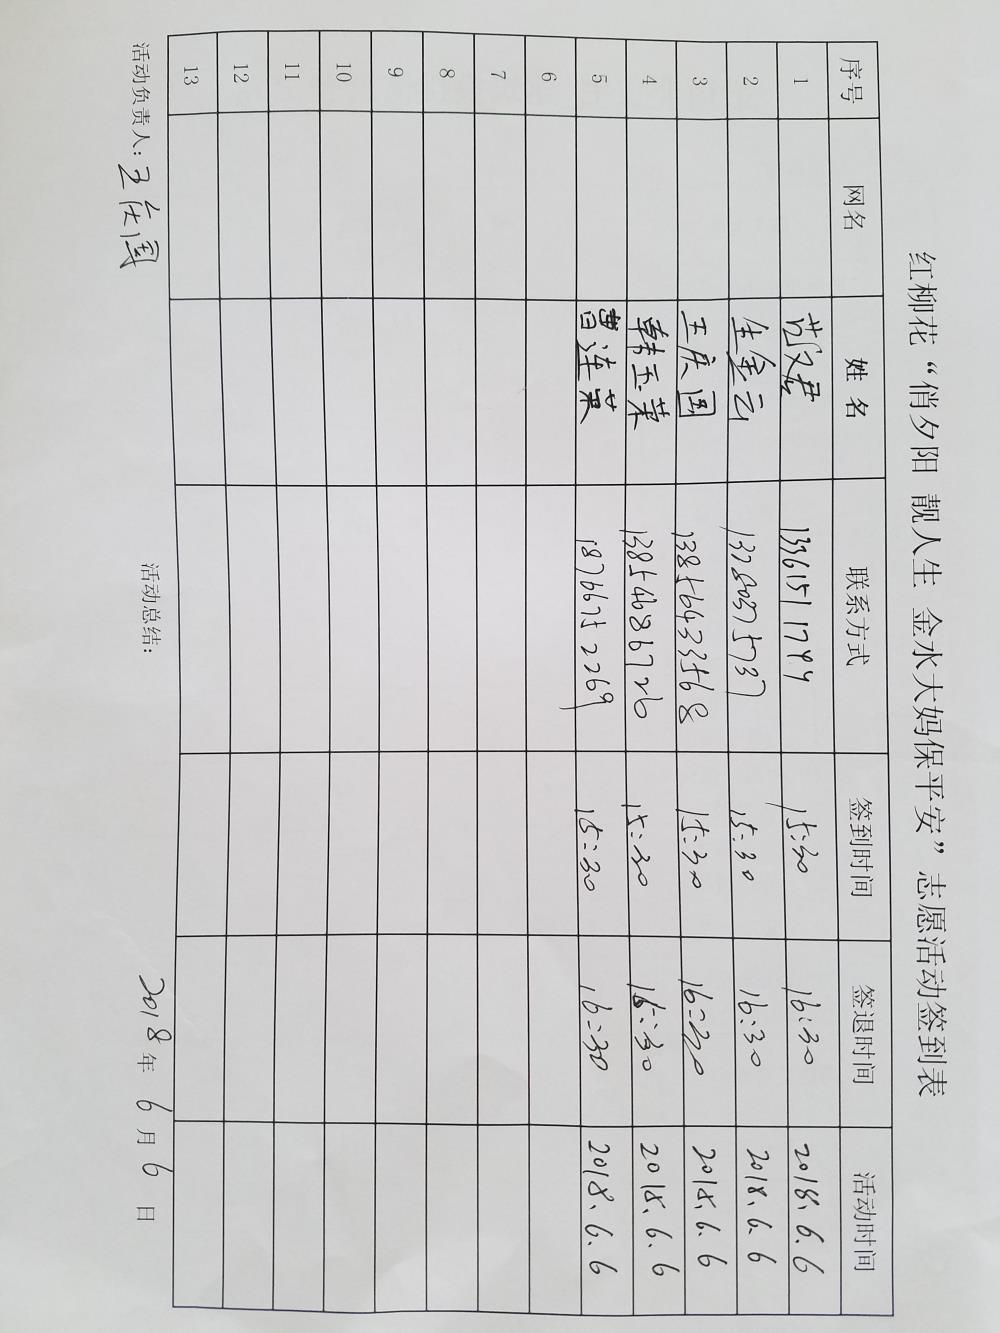 红柳花“俏夕阳 靓人生 金水大妈保平安”志愿活动签到表
序号 网名 姓名 联系方式 签到时间 签退时间 活动时间
1 13361511799 15:30 16:30 2018.6.6
2 生金云 13780375737 15:30 16:30 2018.6.6
3 王庆国 13856433568 15:30 16:30 2018.6.6
4 韩玉荣 13854686726 15:30 16:30 2018.6.6
5 曹连英 18766752269 15:30 16:30 2018.6.6
6
7
8
9
10
11
12
13
活动负责人：王庆国 活动总结： 2018年6月6日